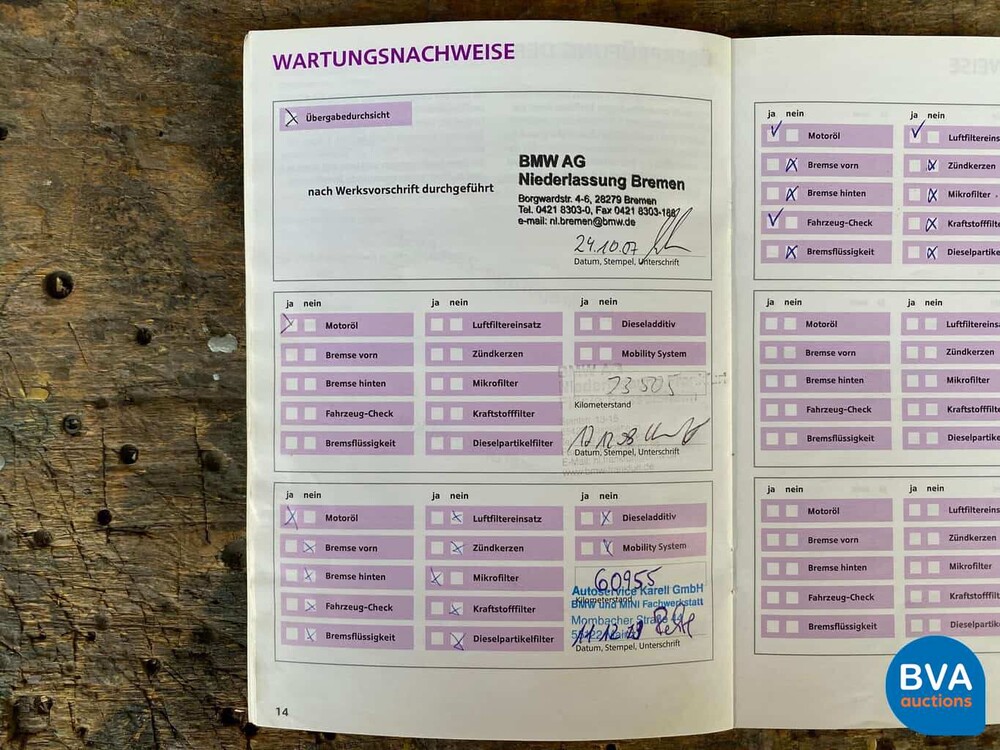 WARTUNGSNACHWEISE
Übergabedurchsicht
nach Werksvorschrift durchgeführt
BMW AG
Niederlassung Bremen
Borgwardstr. 4-6, 28279 Bremen
Tel. 0421 8303-0, Fax 0421 8303-188
e-mail: nl.bremen@bmw.de
24.10.07
Datum, Stempel, Unterschrift
ja nein ja nein ja nein
Motoröl Luftfiltereinsatz Dieseladditiv
Bremse vorn Zündkerzen Mobility System
Bremse hinten Mikrofilter 23505
Kilometerstand
Fahrzeug-Check Kraftstofffilter
Bremsflüssigkeit Dieselpartikelfilter Datum, Stempel, Unterschrift
ja nein ja nein ja nein
Motoröl Luftfiltereinsatz Dieseladditiv
Bremse vorn Zündkerzen Mobility System
Bremse hinten Mikrofilter 60955
Autoservice Karell GmbH
Kilometerstand
BMW und MINI Fachwerkstatt
Fahrzeug-Check Kraftstofffilter Mombacher Straße
Bremsflüssigkeit Dieselpartikelfilter
Datum, Stempel, Unterschrift
14
ja nein ja nein
Motoröl Luftfiltereins
Bremse vorn Zündkerzen
Bremse hinten Mikrofilter
Fahrzeug-Check Kraftstofffilt
Bremsflüssigkeit Dieselpartike
ja nein ja nein
Motoröl Luftfiltereins
Bremse vorn Zündkerzen
Bremse hinten Mikrofilter
Fahrzeug-Check Kraftstofffilt
Bremsflüssigkeit Dieselpartik
ja nein ja nein
Motoröl Luftfiltereins
Bremse vorn Zündkerzen
Bremse hinten Mikrofilter
Fahrzeug-Check Kraftstofffilt
Bremsflüssigkeit Dieselpartik
BVA
auctions